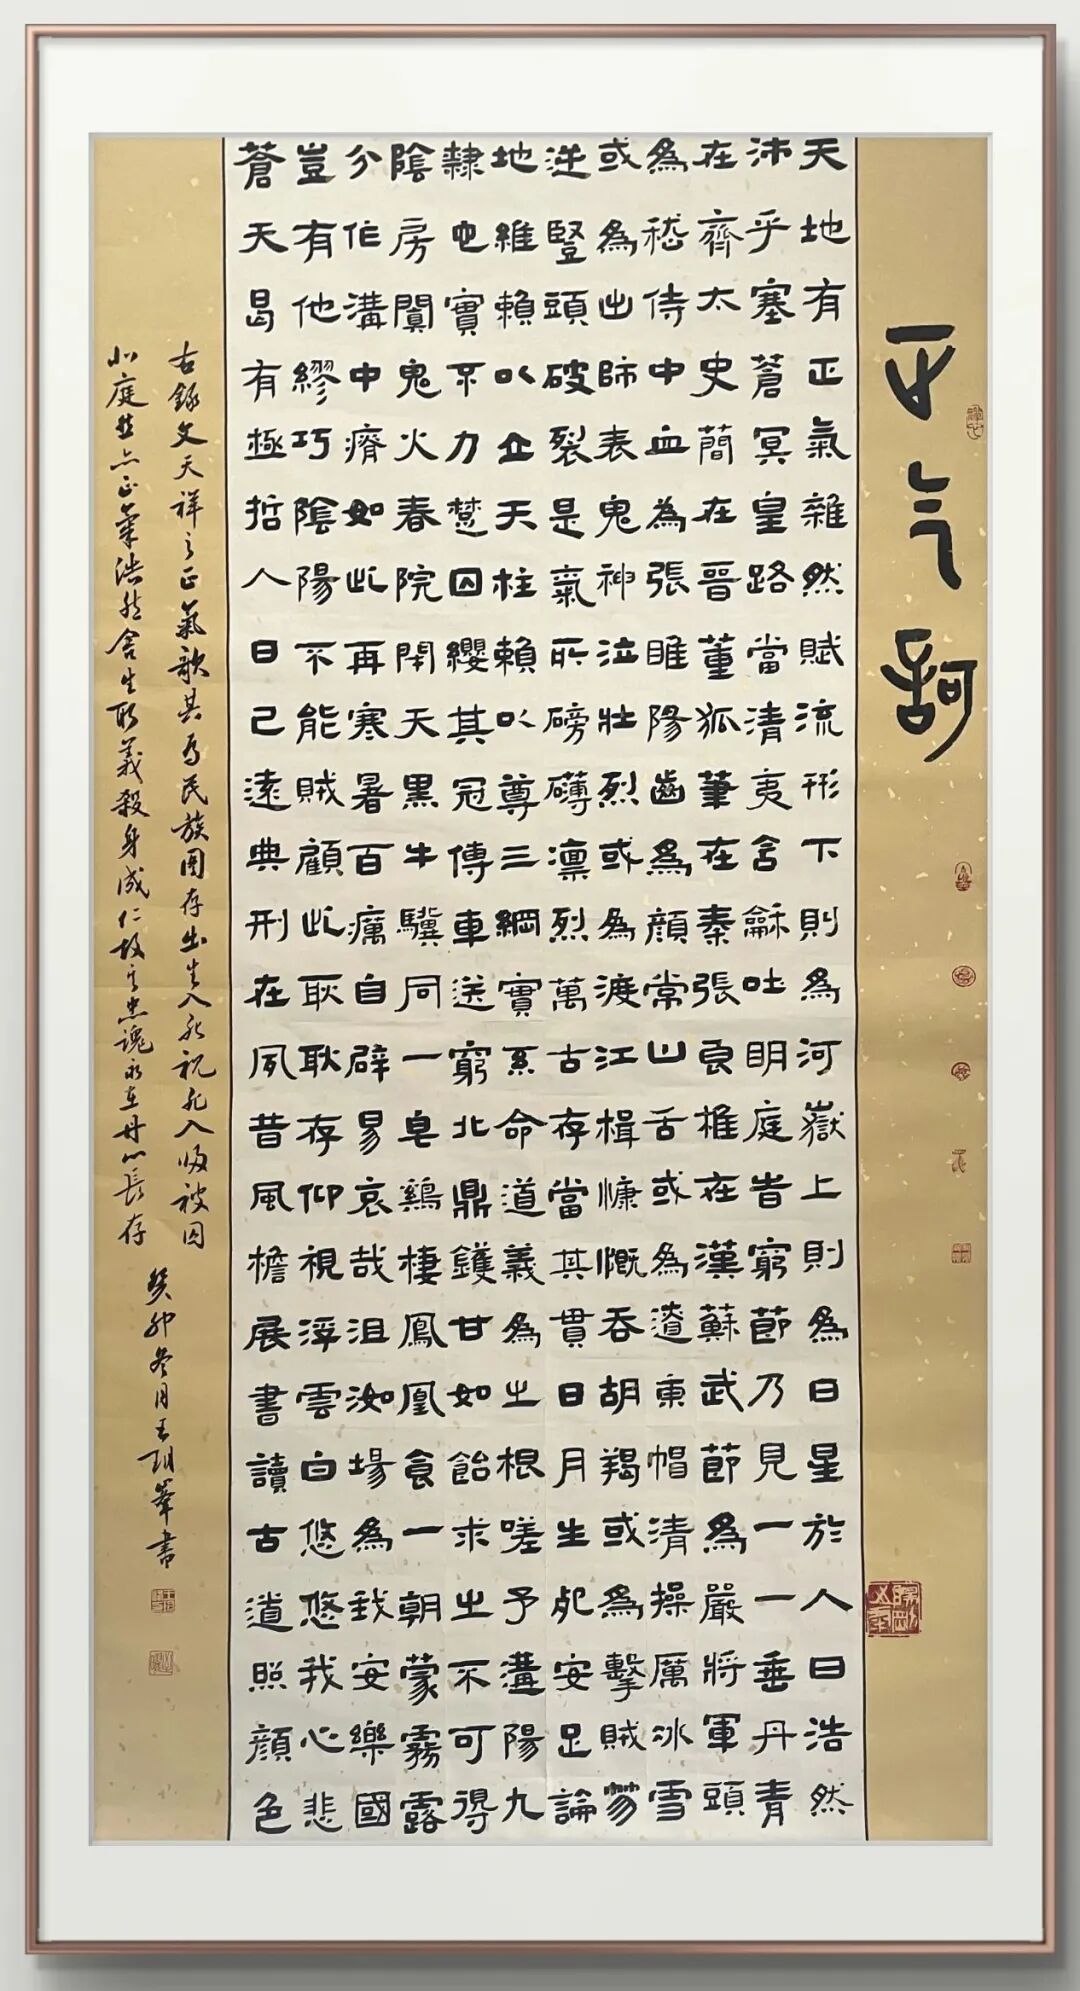 正气訶
天地有正氣雜然賦流形下則為河嶽上則為日星於人曰浩然
沛乎塞蒼冥皇路當清夷含龢吐明庭旹窮節乃見一一垂丹青
在齊太史簡在晉董狐筆在秦張良椎在漢蘇武節為嚴將軍頭
為嵇侍中血為張睢陽齒為顏常山舌或為遼東帽清操厲冰雪
或為出師表鬼神泣壯烈或為渡江楫慷慨吞胡羯或為擊賊笏
逆豎頭破裂是氣所磅礴凜烈萬古存當其貫日月生死安足論
地維賴以立天柱賴以尊三綱實系命道義為之根嗟予遘陽九
隸也實不力楚囚纓其冠傳車送窮北鼎鑊甘如飴求之不可得
陰房闃鬼火春院閉天黑牛驥同一皂鷄棲鳳凰食一朝蒙霧露
分作溝中瘠如此再寒暑百癘自辟易哀哉沮洳場為我安樂國
豈有他繆巧陰陽不能賊顧此耿耿存仰視浮雲白悠悠我心悲
蒼天曷有極哲人日已遠典刑在夙昔風檐展書讀古道照顏色
右錄文天祥之正氣歌其為民族圖存出生入死視死入歸被囚
北庭然亦正氣浩然舍生取義殺身成仁故其忠魂永在丹心長存
癸卯冬月王書